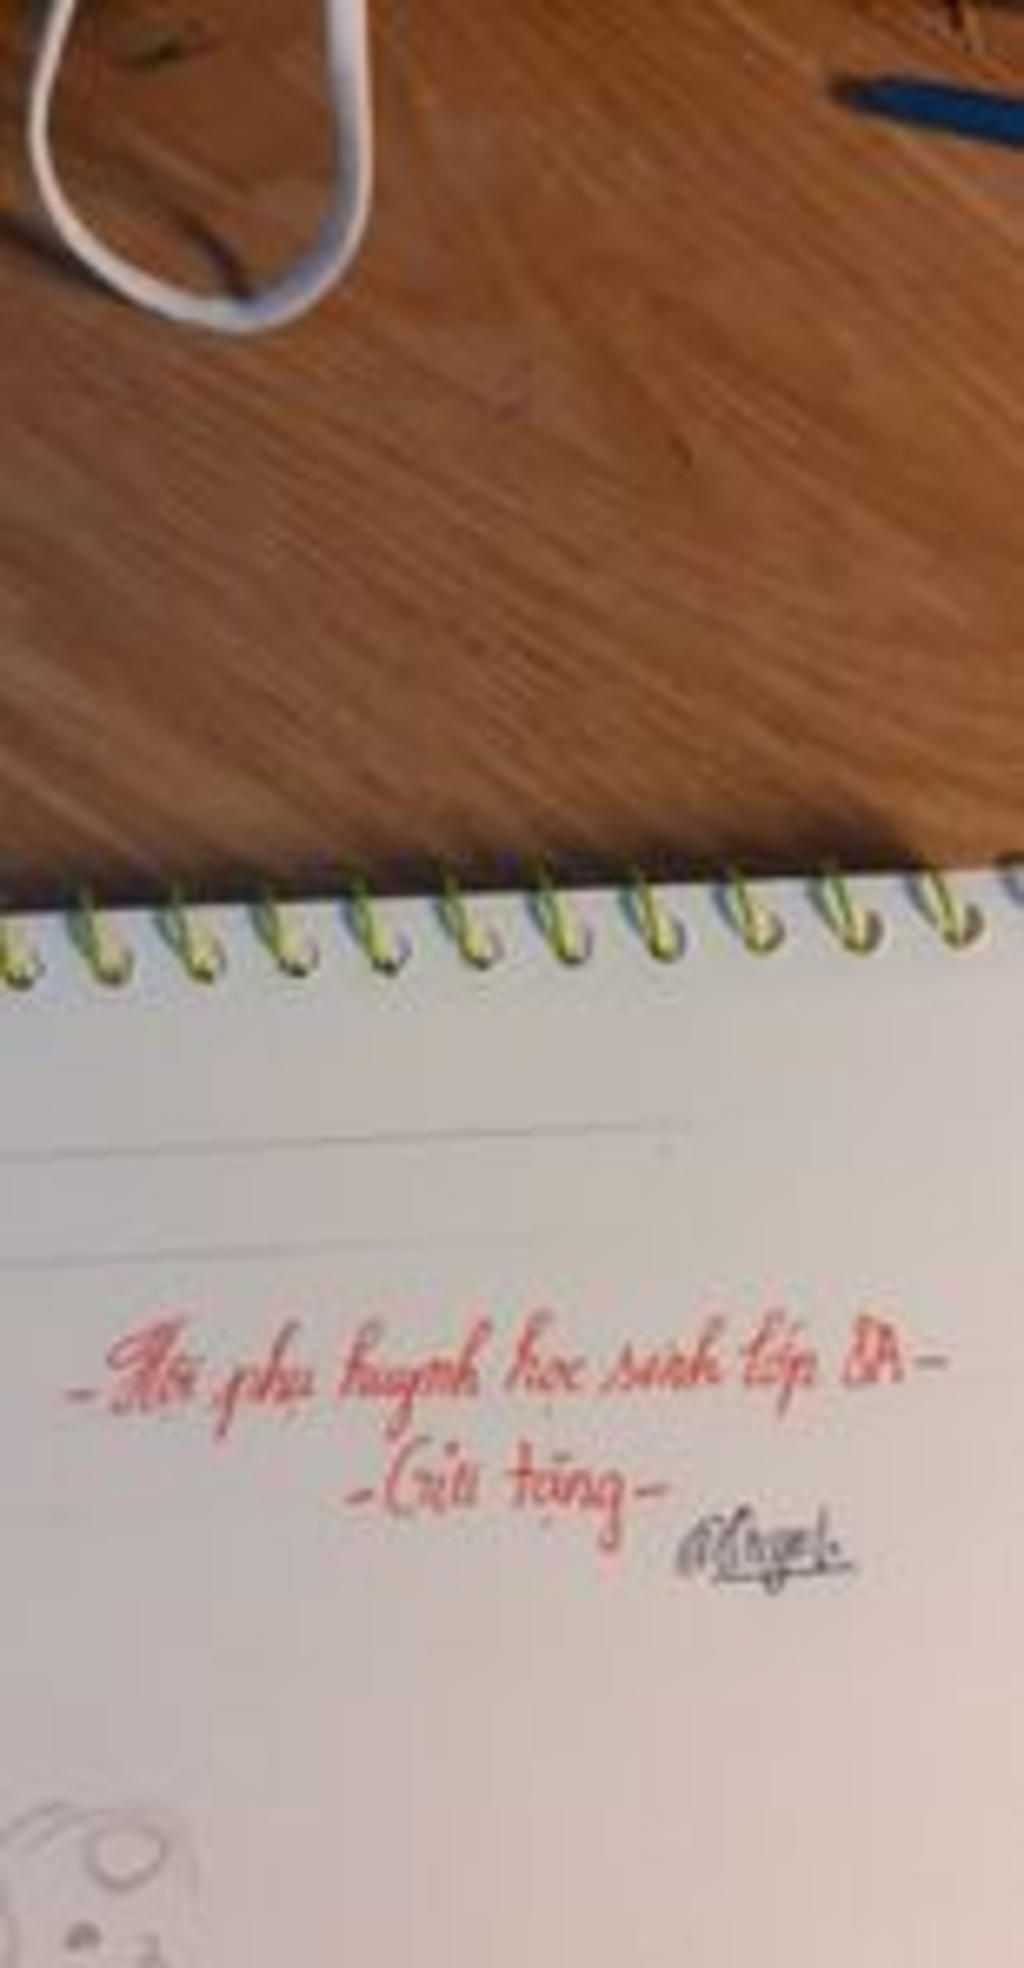 -Hội phụ huynh học sinh lớp 8A-
-Gửi tặng-